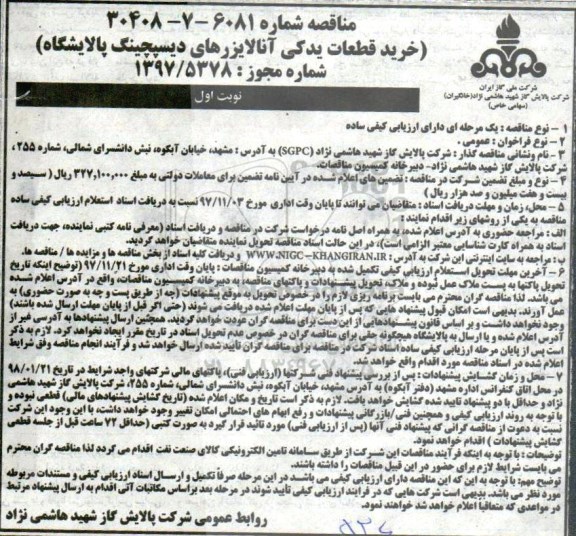 مناقصه شماره ۶۰۸۱ -۷- ۳۰۴۰۸
(خرید قطعات یدکی آنالایزرهای دیسپچینگ پالایشگاه)
شماره مجوز : ۱۳۹۷/۵۳۷۸
شرکت ملی گاز ایران
شرکت پالایش گاز شهید هاشمی نژاد (خانگیران)
(سهامی خاص)
نوبت اول
۱ – نوع مناقصه : یک مرحله ای دارای ارزیابی کیفی ساده
۲ – نوع فراخوان : عمومی .
۳ – نام ونشانی مناقصه گذار : شرکت پالایش گاز شهید هاشمی نژاد (SGPC) به آدرس : مشهد، خیابان آبکوه، نبش دانشسرای شمالی، شماره ۲۵۵ ،
شرکت پالایش گاز شهید هاشمی نژاد- دبیرخانه کمیسیون مناقصات.
۴ – نوع و مبلغ تضمین شرکت در مناقصه : تضمین های اعلام شده در آیین نامه تضمین برای معاملات دولتی به مبلغ ۳۲۷,۱۰۰,۰۰۰ ریال ( سیصد و
بیست و هفت میلیون و صد هزار ریال )
۵ – محل، زمان و مهلت دریافت اسناد : متقاضیان می توانند تا پایان وقت اداری مورخ ۹۷/۱۱/۰۳ نسبت به دریافت اسناد استعلام ارزیابی کیفی ساده
مناقصه به یکی از روشهای زیر اقدام نمایند :
الف : مراجعه حضوری به آدرس اعلام شده، به همراه اصل نامه درخواست شرکت در مناقصه و دریافت اسناد (معرفی نامه کتبی نماینده، جهت دریافت
اسناد به همراه کارت شناسایی معتبر الزامی است)، در این حالت اسناد مناقصه تحویل نماینده متقاضیان خواهد گردید.
ب : مراجعه به سایت اینترنتی این شرکت به آدرس : WWW.NIGC-KHANGIRAN.IR و دریافت کلیه اسناد از بخش مناقصه و مزایده ها / مناقصه ها.
۶ – آخرین مهلت تحویل استعلام ارزیابی کیفی تکمیل شده به دبیرخانه کمیسیون مناقصات : پایان وقت اداری مورخ ۹۷/۱۱/۲۱ (توضیح اینکه تاریخ
تحویل پاکتها به پست ملاک عمل نبوده و ملاک تحویل پیشنهادات و پاکتهای مناقصه به دبیرخانه کمیسیون مناقصات واقع در آدرس اعلام شده
می باشد. لذا مناقصه گران محترم می بایست برنامه ریزی لازم را در خصوص تحویل به موقع پیشنهادات (چه از طریق پست و چه به صورت حضوری) به
عمل آورند. بدیهی است امکان قبول پیشنهاد هایی که پس از پایان مهلت اعلام شده دریافت می شود (حتی اگر قبل از پایان مهلت ارسال شده باشند)
وجود نخواهد داشت و بر اساس قانون پیشنهادهایی از این دست برای مناقصه گران عودت خواهد گردید، همچنین ارسال پیشنهادها به آدرسی غیر از
آدرس اعلام شده و یا ارسال به پالایشگاه هیچگونه حقی برای مناقصه گران در خصوص عدم تحویل اسناد در تاریخ مقرر ایجاد نخواهد کرد. لازم به ذکر
است پس از پایان مرحله ارزیابی کیفی ساده اسناد شرکت در مناقصه برای مناقصه گران تأیید شده ارسال خواهد شد و فرآیند انجام مناقصه وفق شرایط
اعلام شده در اسناد مناقصه مورد اقدام واقع خواهد شد.
۷ – محل و زمان گشایش پیشنهادات : پس از بررسی پیشنهاد فنی شرکتها (ارزیابی فنی)، پاکتهای مالی شرکتهای واجد شرایط در تاریخ ۹۸/۰۱/۲۱
در محل اتاق کنفرانس اداره مشهد (دفتر آبکوه) به آدرس مشهد، خیابان آبکوه، نبش دانشسرای شمالی، شماره ۲۵۵، شرکت پالایش گاز شهید هاشمی
نژاد و حداقل با دو پیشنهاد تأیید شده گشایش خواهد یافت. لازم به ذکر است تاریخ و مکان اعلام شده (تاریخ گشایش پیشنهادهای مالی) قطعی نبوده و
با توجه به روند ارزیابی کیفی و همچنین فنی/بازرگانی پیشنهادات و رفع ابهام های احتمالی امکان تغییر وجود خواهد داشت، با این وجود این شرکت
نسبت به دعوت از مناقصه گرانی که پیشنهاد فنی آنها (پس از ارزیابی فنی) مورد تائید قرار گیرد به صورت کتبی (حداقل ۷۲ ساعت قبل از جلسه قطعی
گشایش پیشنهادات ) اقدام خواهد نمود.
توضیحات : با توجه به اینکه فرآیند مناقصات این شرکت از طریق سامانه تامین الکترونیکی کالای صنعت نفت اقدام می گردد لذا مناقصه گران محترم
می بایست شرایط لازم برای حضور در این قبیل مناقصات را داشته باشند.
توضیح مهم: با توجه به این که این مناقصه دارای ارزیابی کیفی می باشد در این مرحله صرفاً تکمیل و ارسال اسناد ارزیابی کیفی و مستندات مربوطه
مورد نظر می باشد. بدیهی است شرکت هایی که در فرایند ارزیابی کیفی تأیید شوند در مرحله بعد براساس مکاتبات آتی اقدام به ارسال پیشنهاد مرتبط
در مواعدی که متعاقبا اعلام خواهد شد خواهند نمود.
روابط عمومی شرکت پالایش گاز شهید هاشمی نژاد